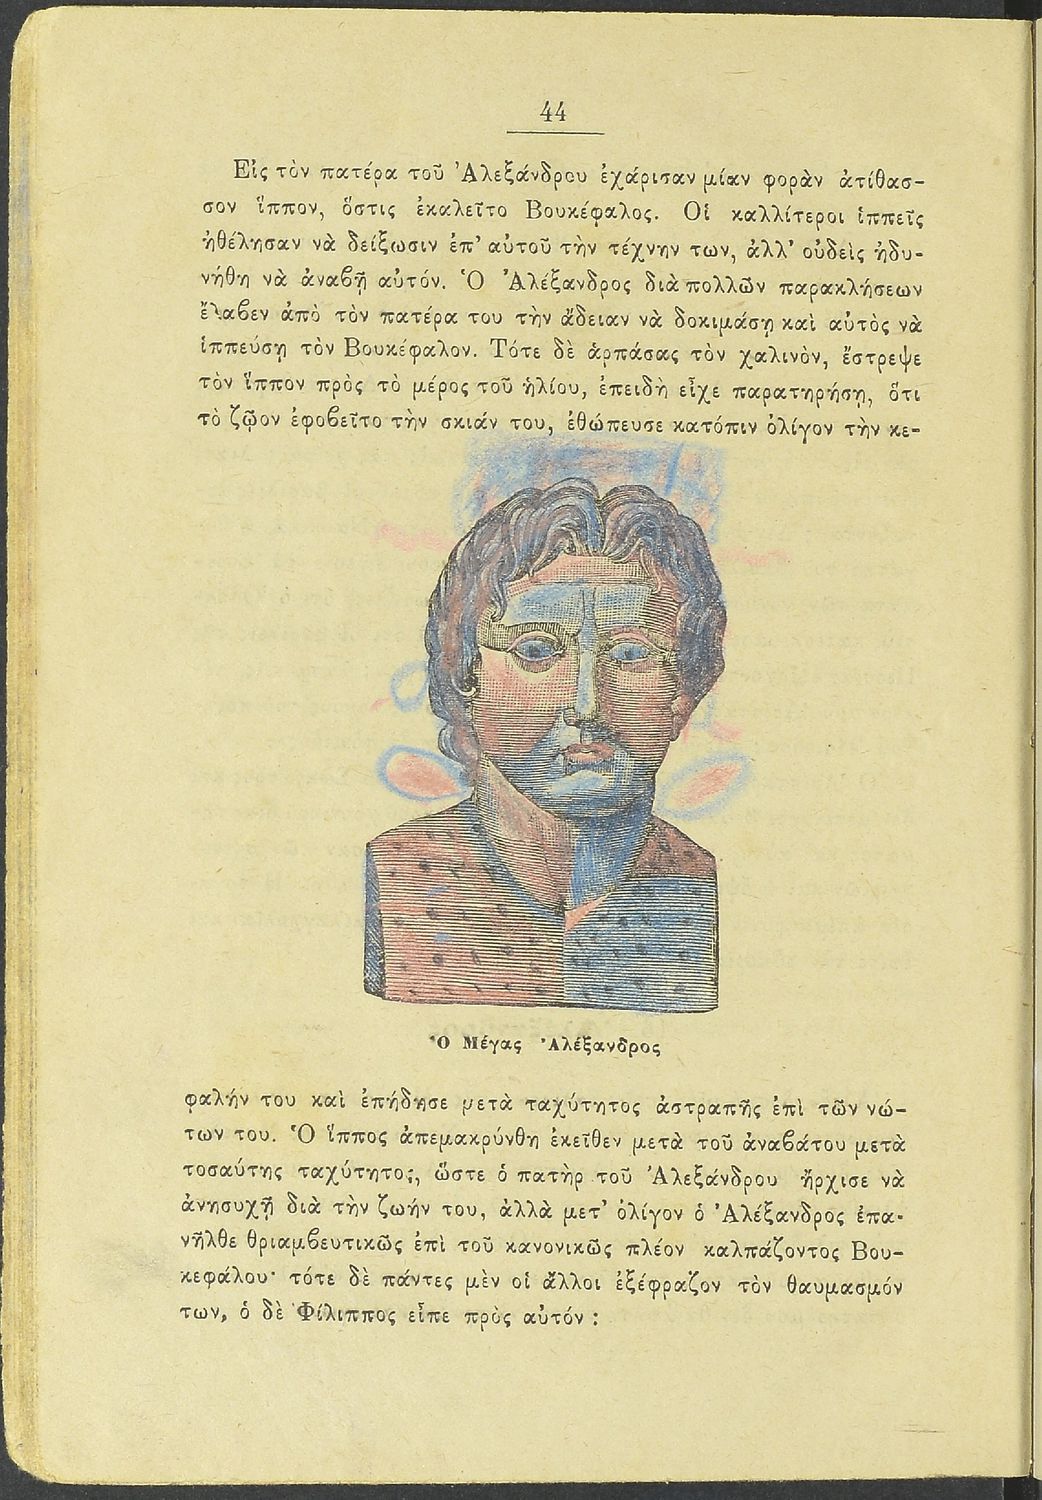 44
Εἰς τὸν πατέρα τοῦ Ἀλεξάνδρου ἐχάρισαν μίαν φορὰν ἀτίθασ-
σον ἵππον, ὅστις ἐκαλεῖτο Βουκέφαλος. Οἱ καλλίτεροι ἱππεῖς
ἠθέλησαν νὰ δείξωσιν ἐπ’ αὐτοῦ τὴν τέχνην των, ἀλλ’ οὐδεὶς ἠδυ-
νήθη νὰ ἀναβῇ αὐτόν. Ὁ Ἀλέξανδρος διὰ πολλῶν παρακλήσεων
ἔλαβεν ἀπὸ τὸν πατέρα του τὴν ἄδειαν νὰ δοκιμάσῃ καὶ αὐτὸς νὰ
ἱππεύσῃ τὸν Βουκέφαλον. Τότε δὲ ἁρπάσας τὸν χαλινὸν, ἔστρεψε
τὸν ἵππον πρὸς τὸ μέρος τοῦ ἡλίου, ἐπειδὴ εἶχε παρατηρήσῃ, ὅτι
τὸ ζῷον ἐφοβεῖτο τὴν σκιάν του, ἐθώπευσε κατόπιν ὀλίγον τὴν κε-
Ὁ Μέγας Ἀλέξανδρος
φαλήν του καὶ ἐπήδησε μετὰ ταχύτητος ἀστραπῆς ἐπὶ τῶν νώ-
των του. Ὁ ἵππος ἀπεμακρύνθη ἐκεῖθεν μετὰ τοῦ ἀναβάτου μετὰ
τοσαύτης ταχύτητος, ὥστε ὁ πατὴρ τοῦ Ἀλεξάνδρου ἤρχισε νὰ
ἀνησυχῇ διὰ τὴν ζωήν του, ἀλλὰ μετ’ ὀλίγον ὁ Ἀλέξανδρος ἐπα-
νῆλθε θριαμβευτικῶς ἐπὶ τοῦ κανονικῶς πλέον καλπάζοντος Βου-
κεφάλου· τότε δὲ πάντες μὲν οἱ ἄλλοι ἐξέφραζον τὸν θαυμασμόν
των, ὁ δὲ Φίλιππος εἶπε πρὸς αὐτόν :